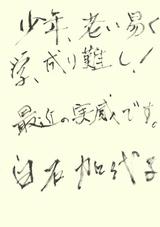 少年、老い易く
学、成り難し!
最近の実感です。
白石加代子